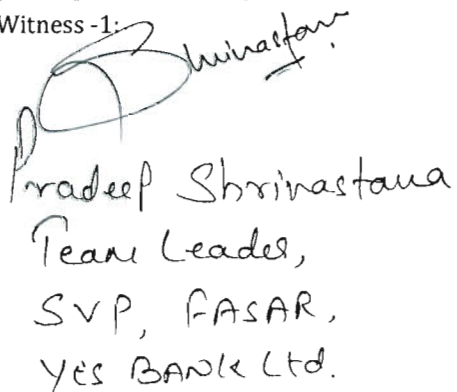 Witness -1:
Shrivastava
Pradeep Shrivastava
Team Leader,
SVP, FASAR,
YES BANK Ltd.